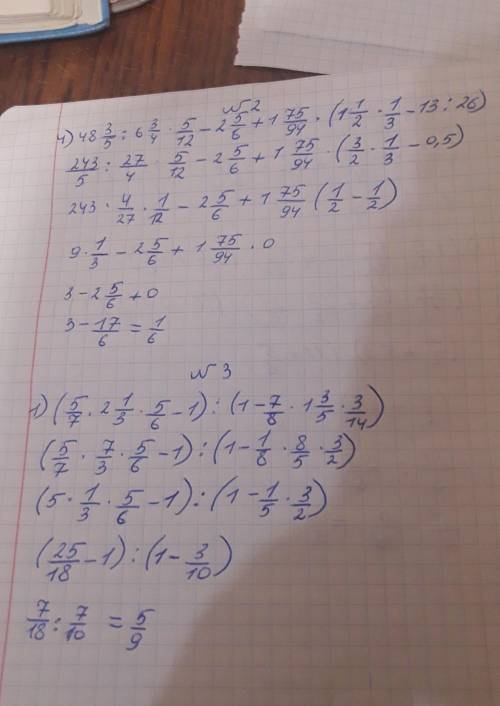 №2
4) 48 3/5 : 6 3/4 · 5/12 - 2 5/6 + 1 75/94 · (1 1/2 · 1/3 - 13 : 26)
243/5 : 27/4 · 5/12 - 2 5/6 + 1 75/94 · (3/2 · 1/3 - 0,5)
243 · 4/27 · 1/12 - 2 5/6 + 1 75/94 (1/2 - 1/2)
9 · 1/3 - 2 5/6 + 1 75/94 · 0
3 - 2 5/6 + 0
3 - 17/6 = 1/6
№3
1) (5/7 · 2 1/3 · 5/6 - 1) : (1 - 7/8 · 1 3/5 · 3/14)
(5/7 · 7/3 · 5/6 - 1) : (1 - 1/8 · 8/5 · 3/2)
(5 · 1/3 · 5/6 - 1) : (1 - 1/5 · 3/2)
(25/18 - 1) : (1 - 3/10)
7/18 : 7/10 = 5/9